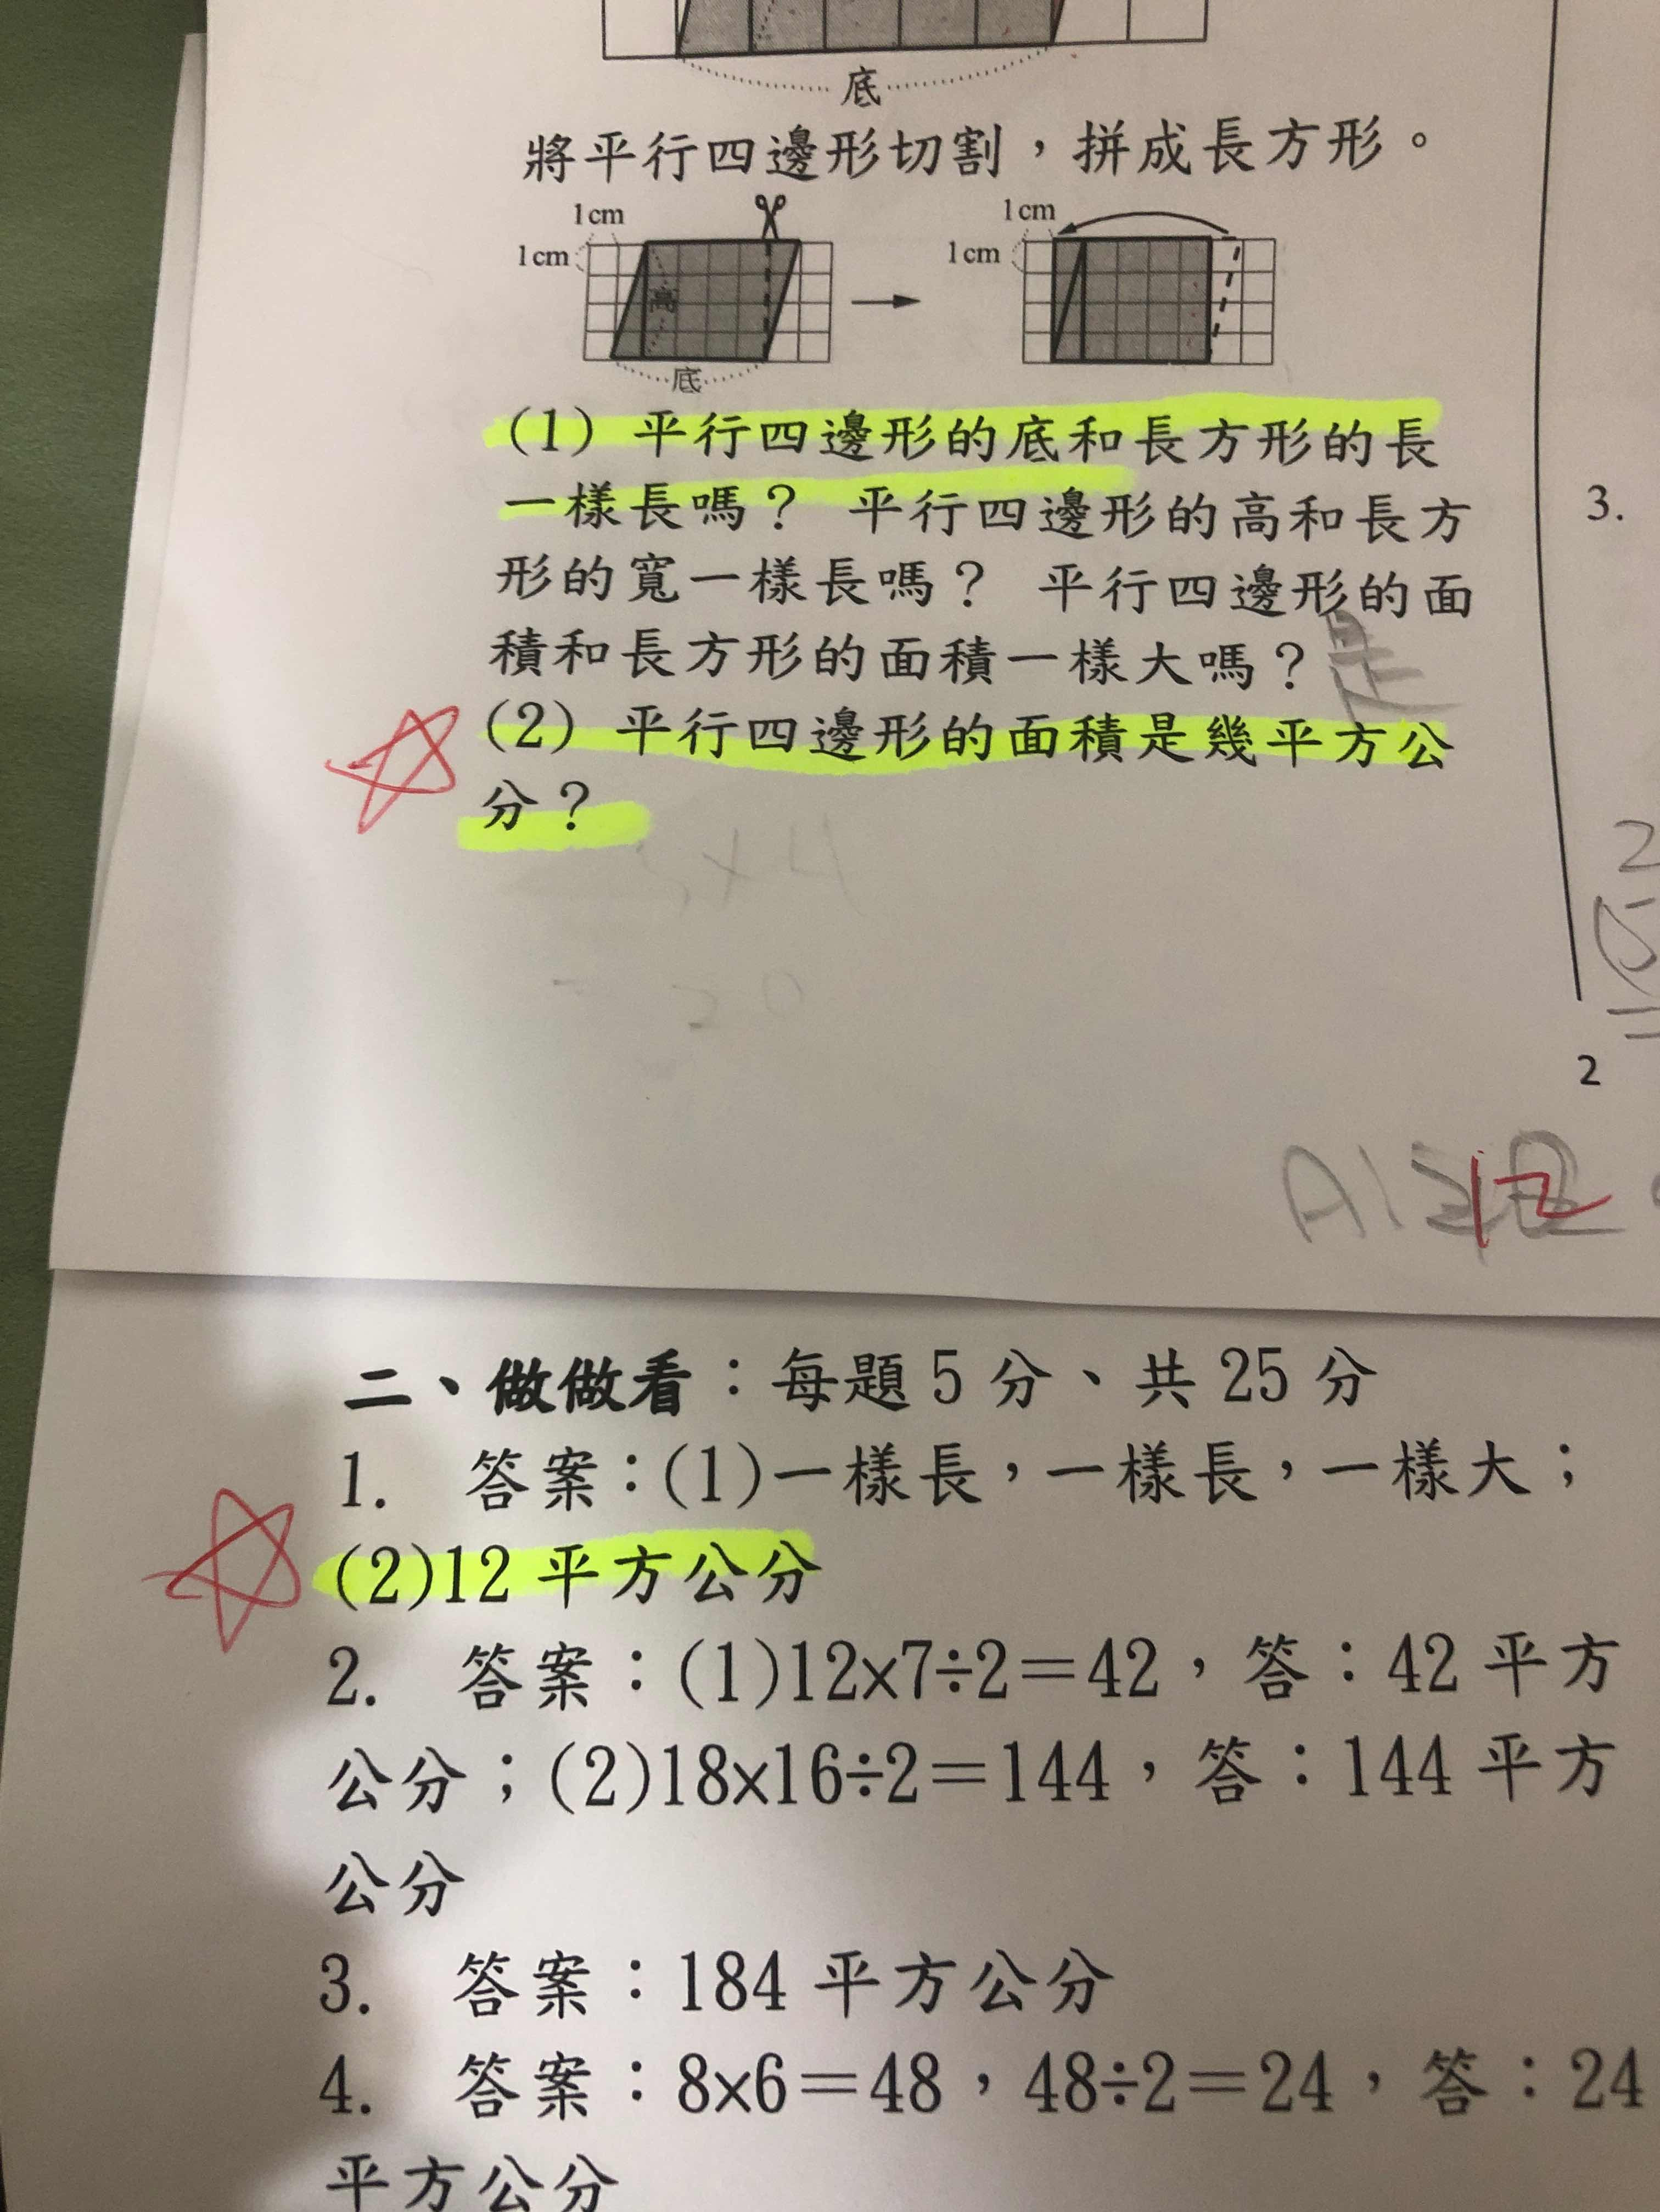 底
將平行四邊形切割，拼成長方形。
1cm
1cm
高
底
1cm
1cm
(1) 平行四邊形的底和長方形的長
一樣長嗎？ 平行四邊形的高和長方
形的寬一樣長嗎？ 平行四邊形的面
積和長方形的面積一樣大嗎？是
(2) 平行四邊形的面積是幾平方公
分？
5×4
= 20
3.
2
(5
=
2
12
二、做做看：每題 5 分、共 25 分
1. 答案：(1)一樣長，一樣長，一樣大；
(2)12 平方公分
2. 答案：(1)12×7÷2＝42，答：42 平方
公分；(2)18×16÷2＝144，答：144 平方
公分
3. 答案：184 平方公分
4. 答案：8×6＝48，48÷2＝24，答：24
平方公分